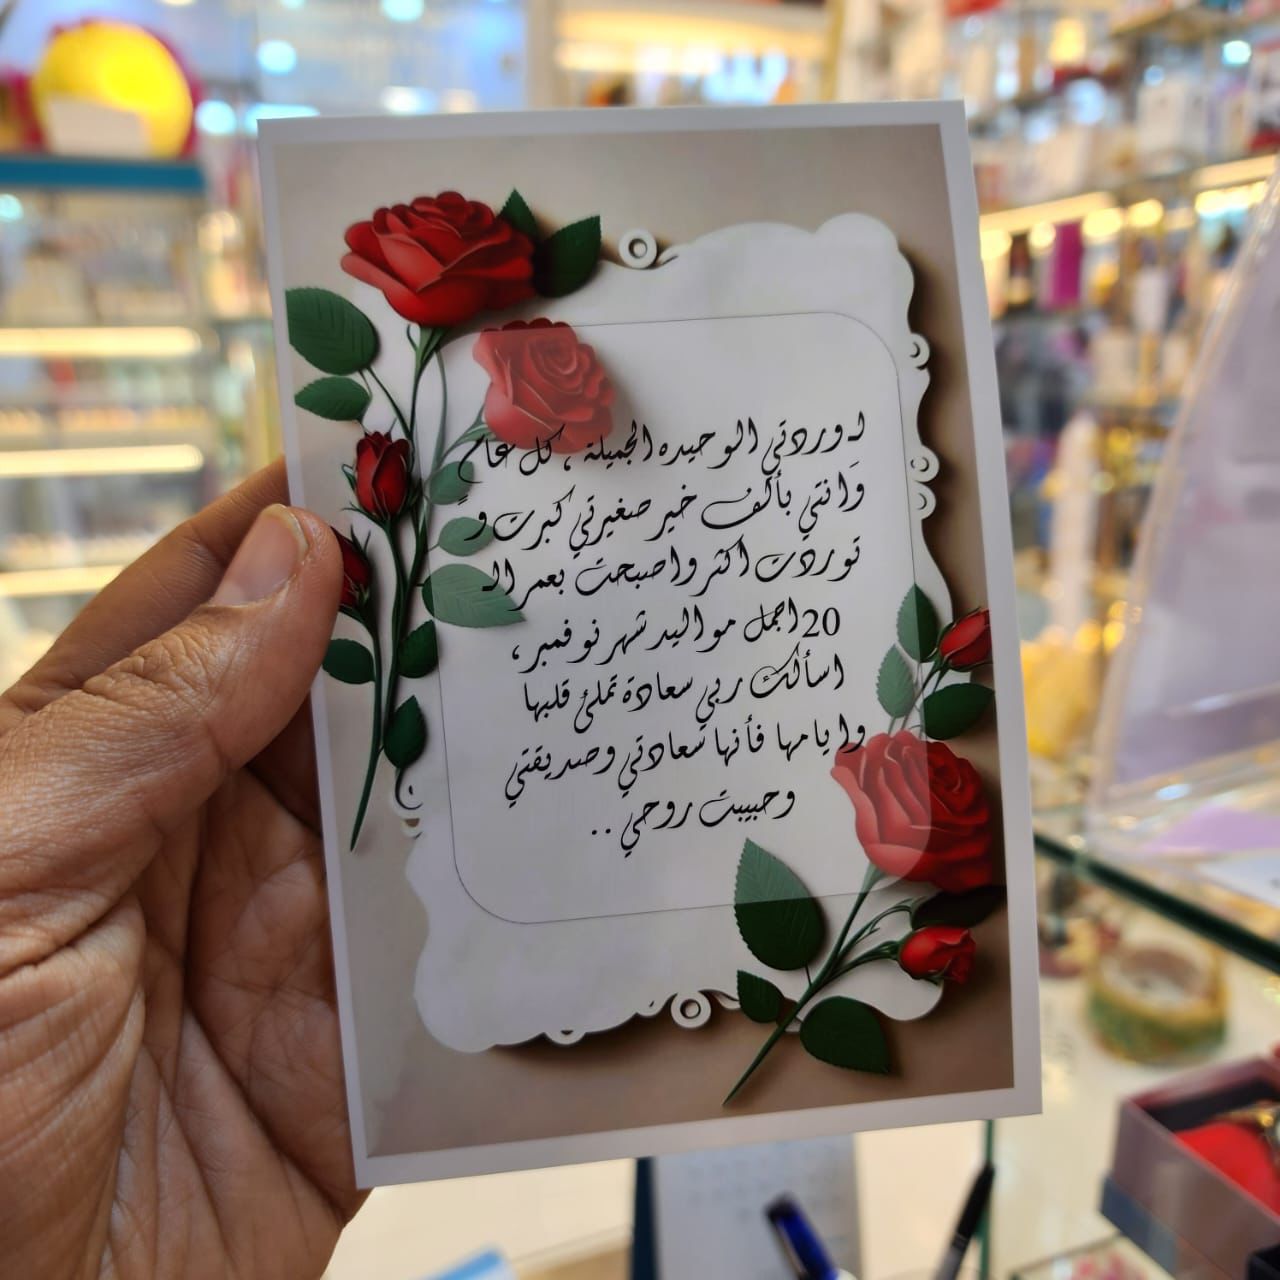 لـ وردتي الوحيده الجميلة ، كل عامٍ
وَانتي بألف خير صغيرتي كبرت و
توردت اكثر واصبحت بعمر الـ
20 اجمل مواليد شهر نوفمبر ،
اسألك ربي سعادة تملئ قلبها
وايامها فأنها سعادتي وصديقتي
وحبيبت روحي ..